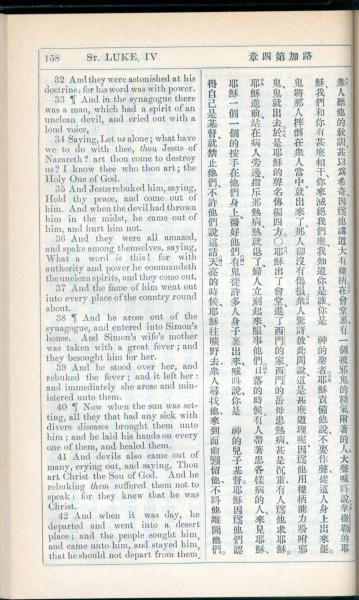 158 St. LUKE, IV 章四第加路
32 And they were astonished at his
doctrine: for his word was power.
33 ¶ And in the synagogue there
was a man, which had a spirit of an
unclean devil, and cried out with a
loud voice,
34 Saying, Let us alone; what have
we to do with thee, thou Jesus of
Nazareth? art thou come to destroy
us? I know thee who thou art; the
Holy One of God.
35 And Jesus rebuked him, saying,
Hold thy peace, and come out of
him. And when the devil had thrown
him in the midst, he came out of
him, and hurt him not.
36 And they were all amazed,
and spake among themselves, saying,
What a word is this! for with
authority and power he commandeth
the unclean spirits, and they come out.
37 And the fame of him went out
into every place of the country round
about.
38 ¶ And he arose out of the
synagogue, and entered into Simon's
house. And Simon's wife's mother
was taken with a great fever; and
they besought him for her.
39 And he stood over her, and
rebuked the fever; and it left her:
and immediately she arose and min-
istered unto them.
40 ¶ Now when the sun was set-
ting, all they that had any sick with
divers diseases brought them unto
him; and he laid his hands on every
one of them, and healed them.
41 And devils also came out of
many, crying out, and saying, Thou
art Christ the Son of God. And he
rebuking them suffered them not to
speak: for they knew that he was
Christ.
42 And when it was day, he
departed and went into a desert
place: and the people sought him,
and came unto him, and stayed him,
that he should not depart from them.
衆人聽他的教訓甚以爲希奇因爲他講道大有權柄在會堂裏有一個被邪鬼的精氣附著的人大聲喊叫說拿撒勒的耶
穌我們和你有甚麼相干你來滅絕我們麼我知道你是誰你是 神的聖者耶穌責備他說不要作聲從這人身上出來罷
鬼將那人摔倒在衆人當中就出來了那人卻沒有傷損衆人驚訝彼此問說這是甚麼道理呢因爲他用權柄能力吩咐邪
鬼鬼就出去於是耶穌的聲名傳徧四方〇耶穌出了會堂進了西門的家西門的岳母患熱病甚是沉重有人爲他求耶穌
耶穌進前站在病人旁邊指斥那熱病熱就退了婦人立刻起來服事他們日落的時候有人帶著患各樣病的人來見耶穌
耶穌一個一個的按手在他們身上醫好他們有鬼從許多人身子裏出來喊叫說你是 神的兒子基督耶穌因爲他們認
得自己是基督就禁止他們不許他們說這話天亮的時候耶穌往曠野去衆人尋找他來到面前強留他不叫他離開他們